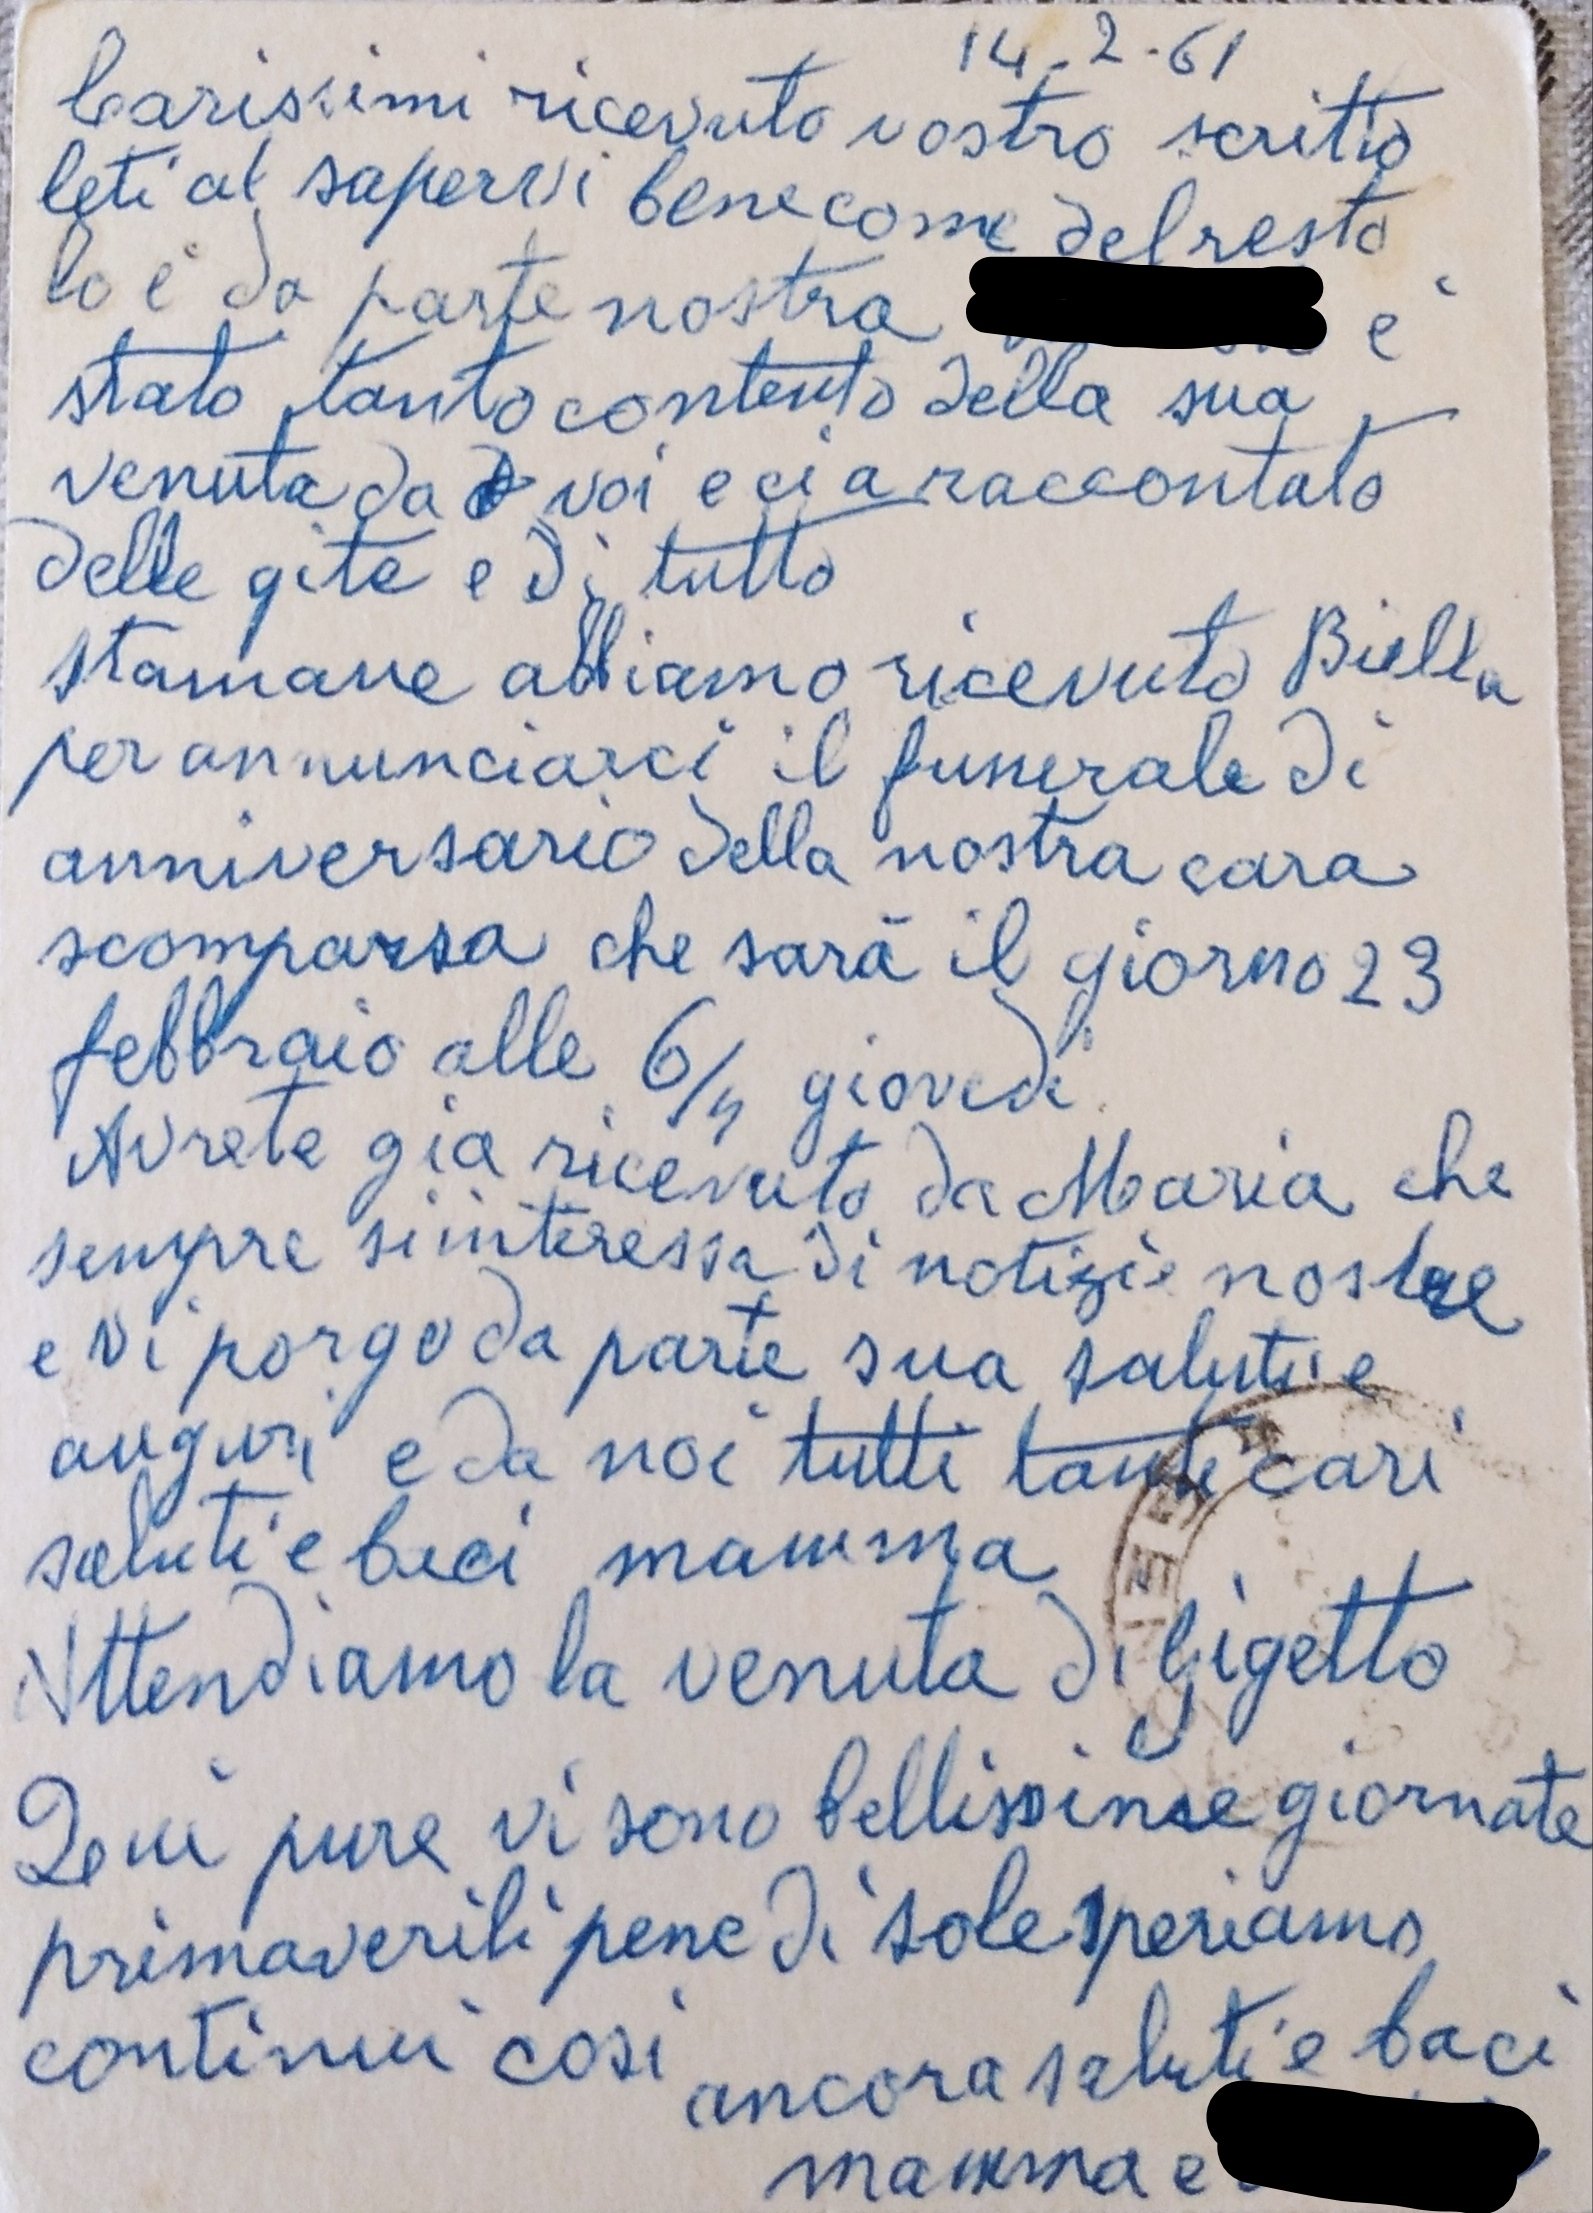 14-2-61
Carissimi ricevuto vostro scritto
leti al sapervi bene come del resto
lo è da parte nostra è
stato tanto contento della sua
venuta da voi e ci a raccontato
delle gite e di tutto
stamane abbiamo ricevuto Biella
per annunciarci il funerale di
anniversario della nostra cara
scomparsa che sarà il giorno 23
febbraio alle 6/4 giovedi
Avrete già ricevuto da Maria che
sempre si interessa di notizie nostre
e vi porgo da parte sua saluti e
auguri e da noi tutti tanti cari
saluti e baci mamma
Attendiamo la venuta di Gigetto
Qui pure vi sono bellissime giornate
primaverili pene di sole speriamo
continui cosi
ancora saluti e baci
mamma e